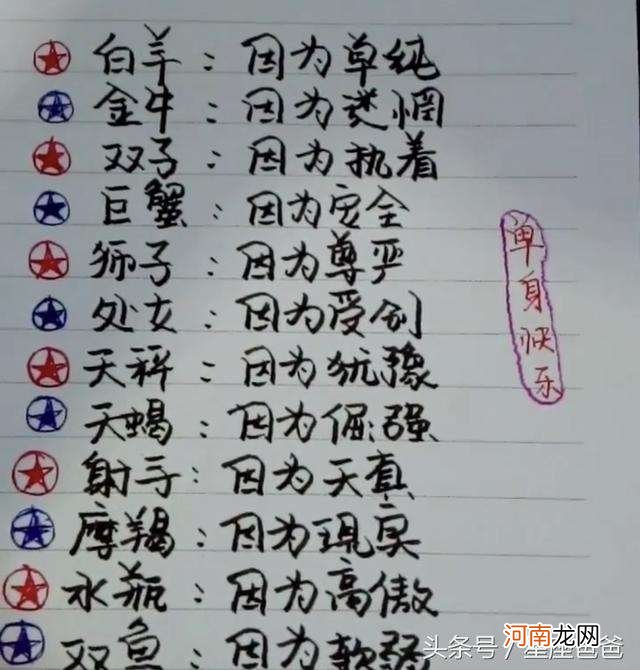 白羊：因为单纯
金牛：因为迷惘
双子：因为执着
巨蟹：因为安全
狮子：因为尊严
处女：因为受创
天秤：因为犹豫
天蝎：因为倔强
射手：因为天真
摩羯：因为现实
水瓶：因为高傲
双鱼：因为软弱
单身快乐
头条号／星座爸爸
深港在线
创业龙网